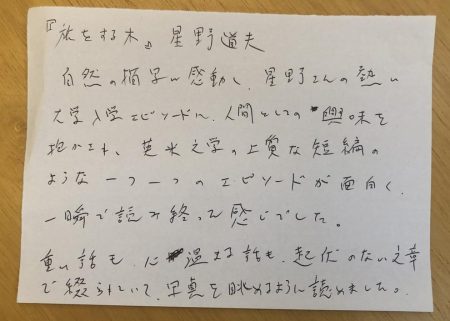 『旅をする木』 星野道夫
自然の描写に感動し、星野さんの熱い
大学入学エピソードに、人間としての興味を
抱かされ、英米文学の上質な短編の
ような一つ一つのエピソードが面白く、
一瞬で読み終った感じでした。
重い話も、心温まる話も、起伏のない文章
で綴られていて、写真を眺めるように読めました。